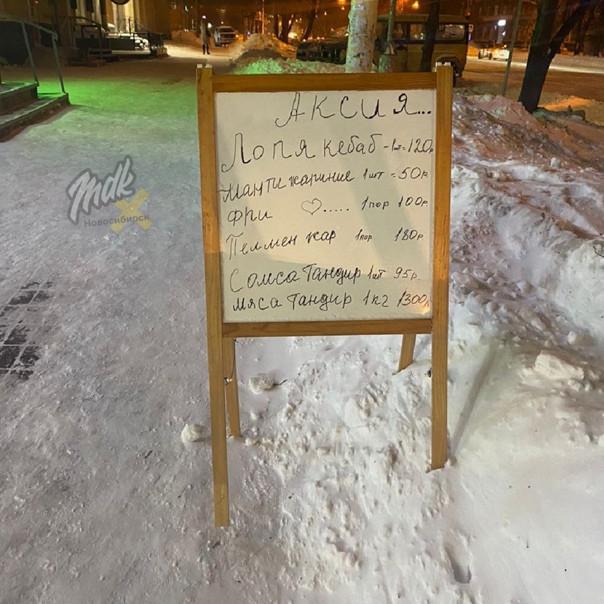 Аксия...
Лопя кебаб - 1ш = 120р
Манти жариние 1шт = 50р.
Фри ♡..... 1пор 100р.
Пелмен жар 1пор 180р
Сомса Тандир 1шт 95р
мяса Тандир 1кг 1300р
mdk
Новосибирск